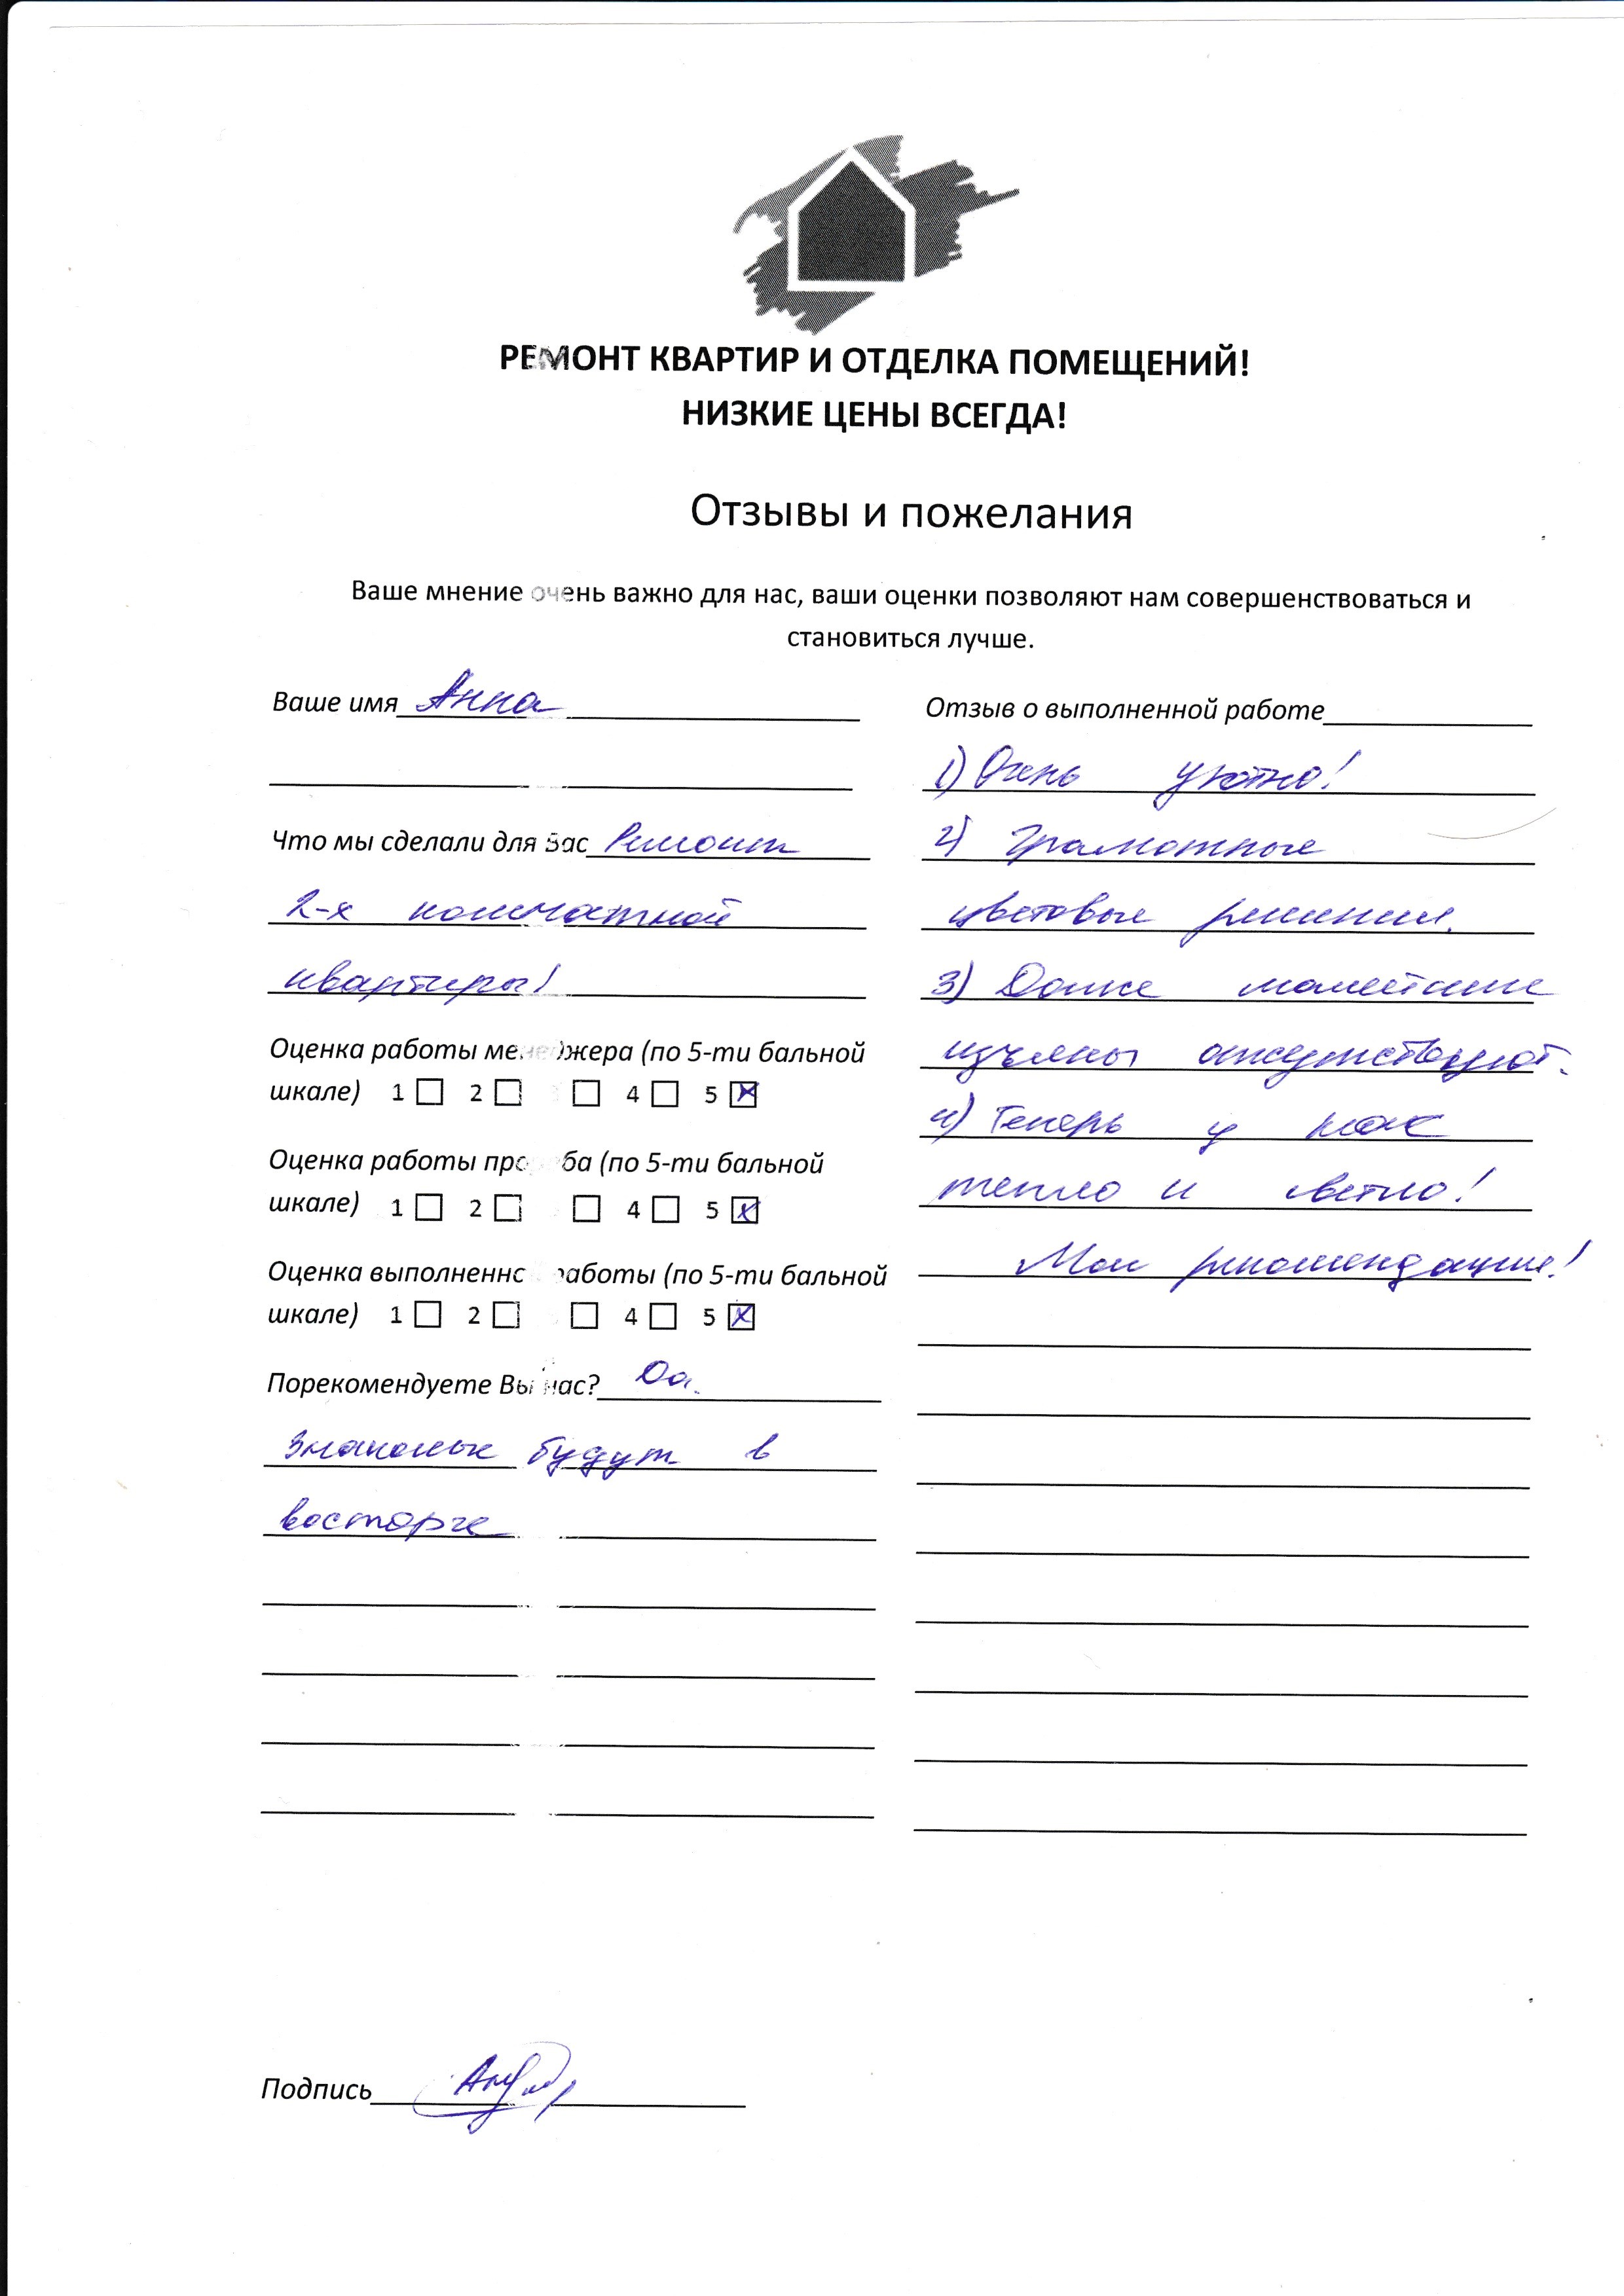 РЕМОНТ КВАРТИР И ОТДЕЛКА ПОМЕЩЕНИЙ!
НИЗКИЕ ЦЕНЫ ВСЕГДА!
Отзывы и пожелания
Ваше мнение очень важно для нас, ваши оценки позволяют нам совершенствоваться и
становиться лучше.
Ваше имя Анна
Что мы сделали для Вас Ремонт
2-х комнатной
квартиры!
Оценка работы менеджера (по 5-ти бальной
шкале) 1 2 4 5
Оценка работы прораба (по 5-ти бальной
шкале) 1 2 4 5
Оценка выполненной работы (по 5-ти бальной
шкале) 1 2 4 5
Порекомендуете Вы нас? Да.
Знакомые будут в
восторге
Отзыв о выполненной работе
1) Очень уютно!
2) Грамотные
цветовые решения.
3) Даже малейшие
изъяны отсутствуют.
4) Теперь у нас
тепло и светло!
Мои рекомендации!
Подпись